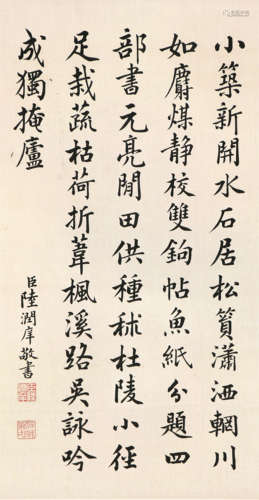 小築新開水石居松篔瀟洒輞川
如麝煤靜校雙鉤帖魚紙分題四
部書元亮閒田供種秫杜陵小徑
足栽蔬枯荷折葦楓溪路吳詠吟
成獨掩廬
臣陸潤庠敬書